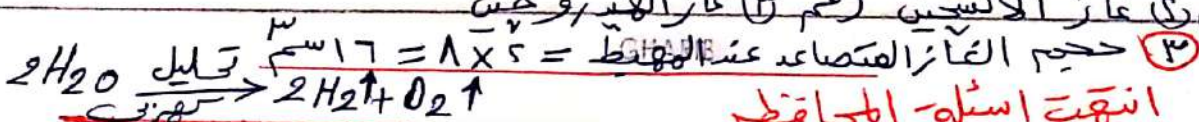 غاز الأكسجين رقم (٢) غاز الهيدروجين
(٣) حجم الغاز المتصاعد عند المهبط = ٢ × ٨ = ١٦ سم٣
2H2O تحليل كهربى → 2H2↑ + O2↑
انتهت اسئلة المحافظ